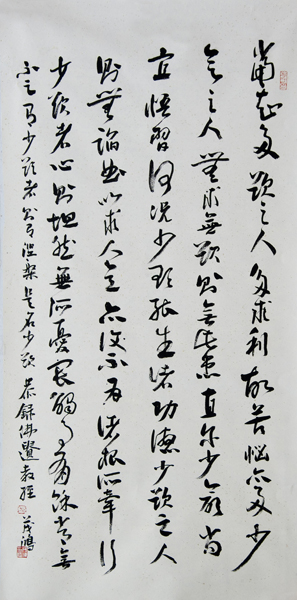 當知多欲之人多求利故苦惱亦多少
欲之人無求無欲則無此患直尔少欲尚
宜習何況少欲能生諸功德少欲之人
則無諂曲以求人意亦復不為諸根所牽行
少欲者心則坦然無所憂畏觸事有餘常無
不足有少欲者則有涅槃是名少欲 恭錄佛遺教經 茂鴻